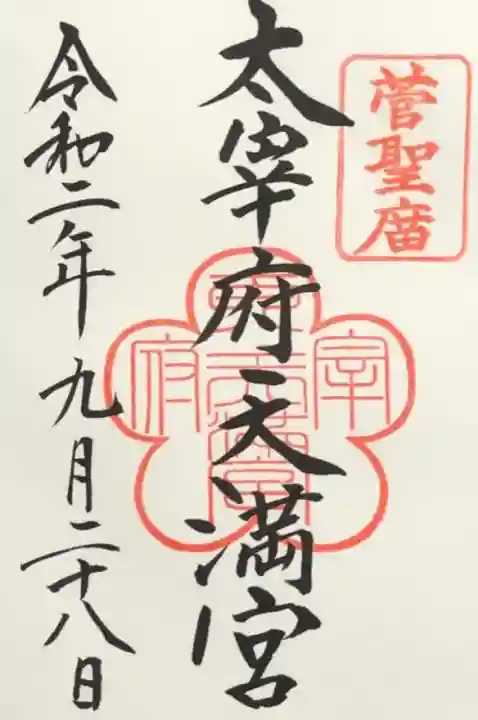 菅聖庿
太宰府天満宮
令和二年九月二十八日